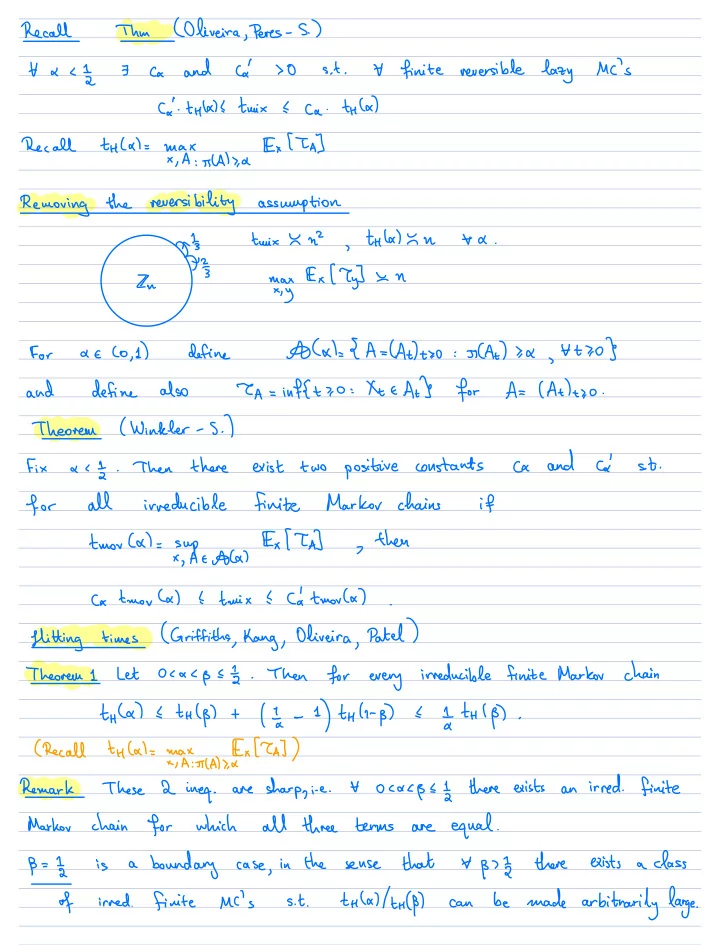 Recall Thm (Oliveira, Peres - S.)
∀ α < 1/2 ∃ cα and cα' > 0 s.t. ∀ finite reversible lazy MC's
cα'· tH(α) ≤ tmix ≤ cα · tH(α)
Recall tH(α) = max_{x, A: π(A) ≥ α} 𝔼x[τA]
Removing the reversibility assumption
1/3
2/3
ℤn
tmix ≍ n², tH(α) ≍ n ∀ α.
max_{x,y} 𝔼x[τy] ≍ n
For α ∈ (0,1) define 𝒜(α) = { A = (At)t≥0 : π(At) ≥ α, ∀ t ≥ 0 }
and define also τA = inf{ t ≥ 0 : Xt ∈ At } for A = (At)t≥0.
Theorem (Winkler - S.)
Fix α < 1/2. Then there exist two positive constants cα and cα' s.t.
for all irreducible finite Markov chains if
tmov(α) = sup_{x, A ∈ 𝒜(α)} 𝔼x[τA], then
cα tmov(α) ≤ tmix ≤ cα' tmov(α).
Hitting times (Griffiths, Kang, Oliveira, Patel)
Theorem 1 Let 0 < α < β ≤ 1/2. Then for every irreducible finite Markov chain
tH(α) ≤ tH(β) + (1/α - 1) tH(1-β) ≤ 1/α tH(β).
(Recall tH(α) = max_{x, A: π(A) ≥ α} 𝔼x[τA])
Remark These 2 ineq. are sharp, i.e. ∀ 0 < α < β ≤ 1/2 there exists an irred. finite
Markov chain for which all three terms are equal.
β = 1/2 is a boundary case, in the sense that ∀ β > 1/2 there exists a class
of irred. finite MC's s.t. tH(α)/tH(β) can be made arbitrarily large.